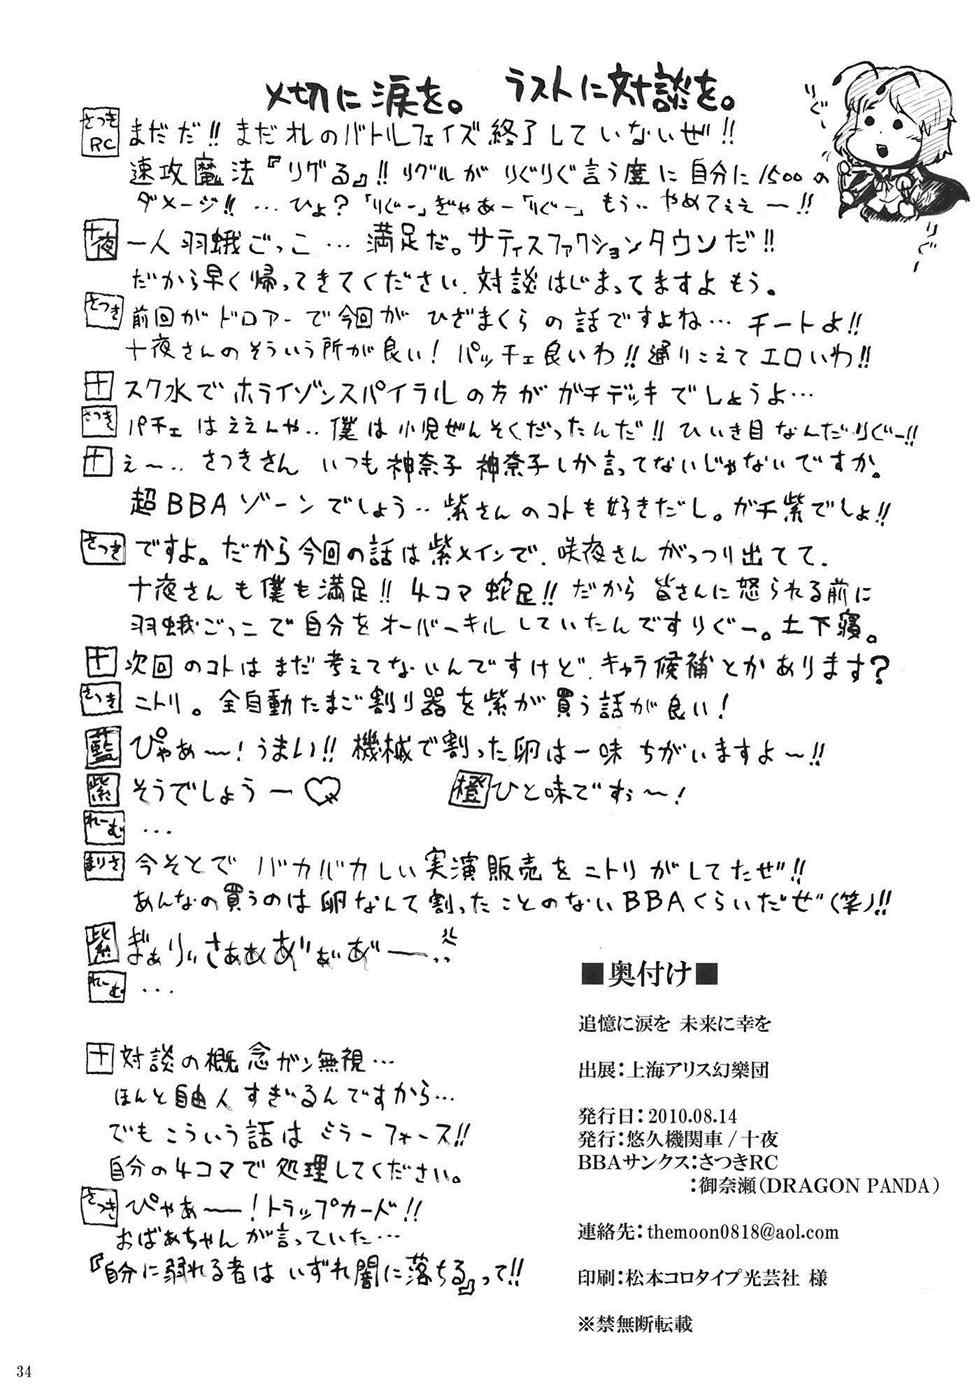 〆切に涙を。 ラストに対談を。
りぐ〜
りぐー!
さつきRC まだだ!! まだオレのバトルフェイズ終了していないぜ!!
速攻魔法『リグる』!! リグルがりぐりぐ言う度に自分に1500の
ダメージ!! …ひょ?「りぐー」ぎゃあー「りぐー」もう‥やめてぇぇー!!
十夜 一人羽蛾ごっこ…満足だ。サティスファクションタウンだ!!
だから早く帰ってきてください.対談はじまってますよもう。
さつき 前回がドロアーで今回がひざまくらの話ですよね…チートよ!!
十夜さんのそういう所が良い! パッチェ良いわ!!通りこえてエロいわ!!
十 スク水でホライゾンスパイラルの方がガチデッキでしょうよ…
さつき パチェはええんや‥僕は小児ぜんそくだったんだ!! ひいき目なんだりぐー!!
十 えー‥さつきさんいつも神奈子神奈子しか言ってないじゃないですか。
超BBAゾーンでしょう‥紫さんのコトも好きだし。ガチ紫でしょ!!
さつき ですよ。だから今回の話は紫メインで.咲夜さんがっつり出てて.
十夜さんも僕も満足!! 4コマ蛇足!! だから皆さんに怒られる前に
羽蛾ごっこで自分をオーバーキルしていたんですりぐー。土下寝。
十 次回のコトはまだ考えてないんですけど.キャラ候補とかあります?
さつき ニトリ。全自動たまご割り器を紫が買う話が良い!
藍 ぴゃあ〜!うまい!! 機械で割った卵は一味ちがいますよ〜!!
紫 そうでしょうー♡ 橙 ひと味ですぅ〜!
れーむ …
まりさ 今そとでバカバカしい実演販売をニトリがしてたぜ!!
あんなの買うのは卵なんて割ったことのないBBAくらいだぜ(笑)!!
紫 まぁりぃさぁぁあ゛ぁ゛ぁ゛ー‥
れーむ …
十 対談の概念ガン無視…
ほんと自由人すぎるんですから…
でもこういう話はミラーフォース!!
自分の4コマで処理してください。
さつき ぴゃあ〜!トラップカード!!
おばぁちゃんが言っていた…
『自分に溺れる者はいずれ闇に落ちる』って!!
■奥付け■
追憶に涙を 未来に幸を
出展：上海アリス幻樂団
発行日：2010.08.14
発行：悠久機関車/十夜
BBAサンクス：さつきRC
：御奈瀬(DRAGON PANDA)
連絡先：themoon0818@aol.com
印刷：松本コロタイプ光芸社 様
※禁無断転載
34